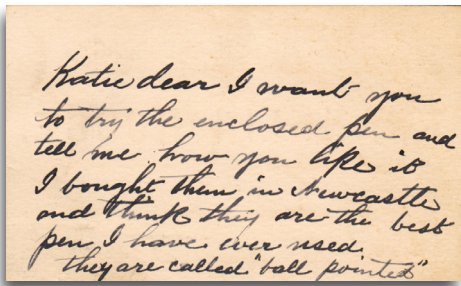 Katie dear I want you
to try the enclosed pen and
tell me how you like it
I bought them in Newcastle
and think they are the best
pen, I have ever used.
they are called "ball pointed"